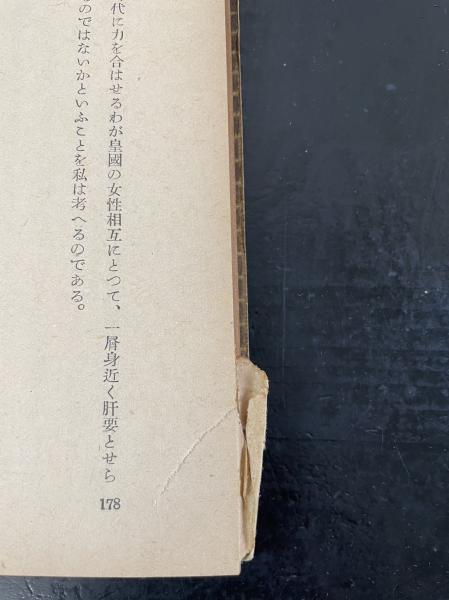 代に力を合はせるわが皇國の女性相互にとつて、一層身近く肝要とせら
のではないかといふことを私は考へるのである。
178